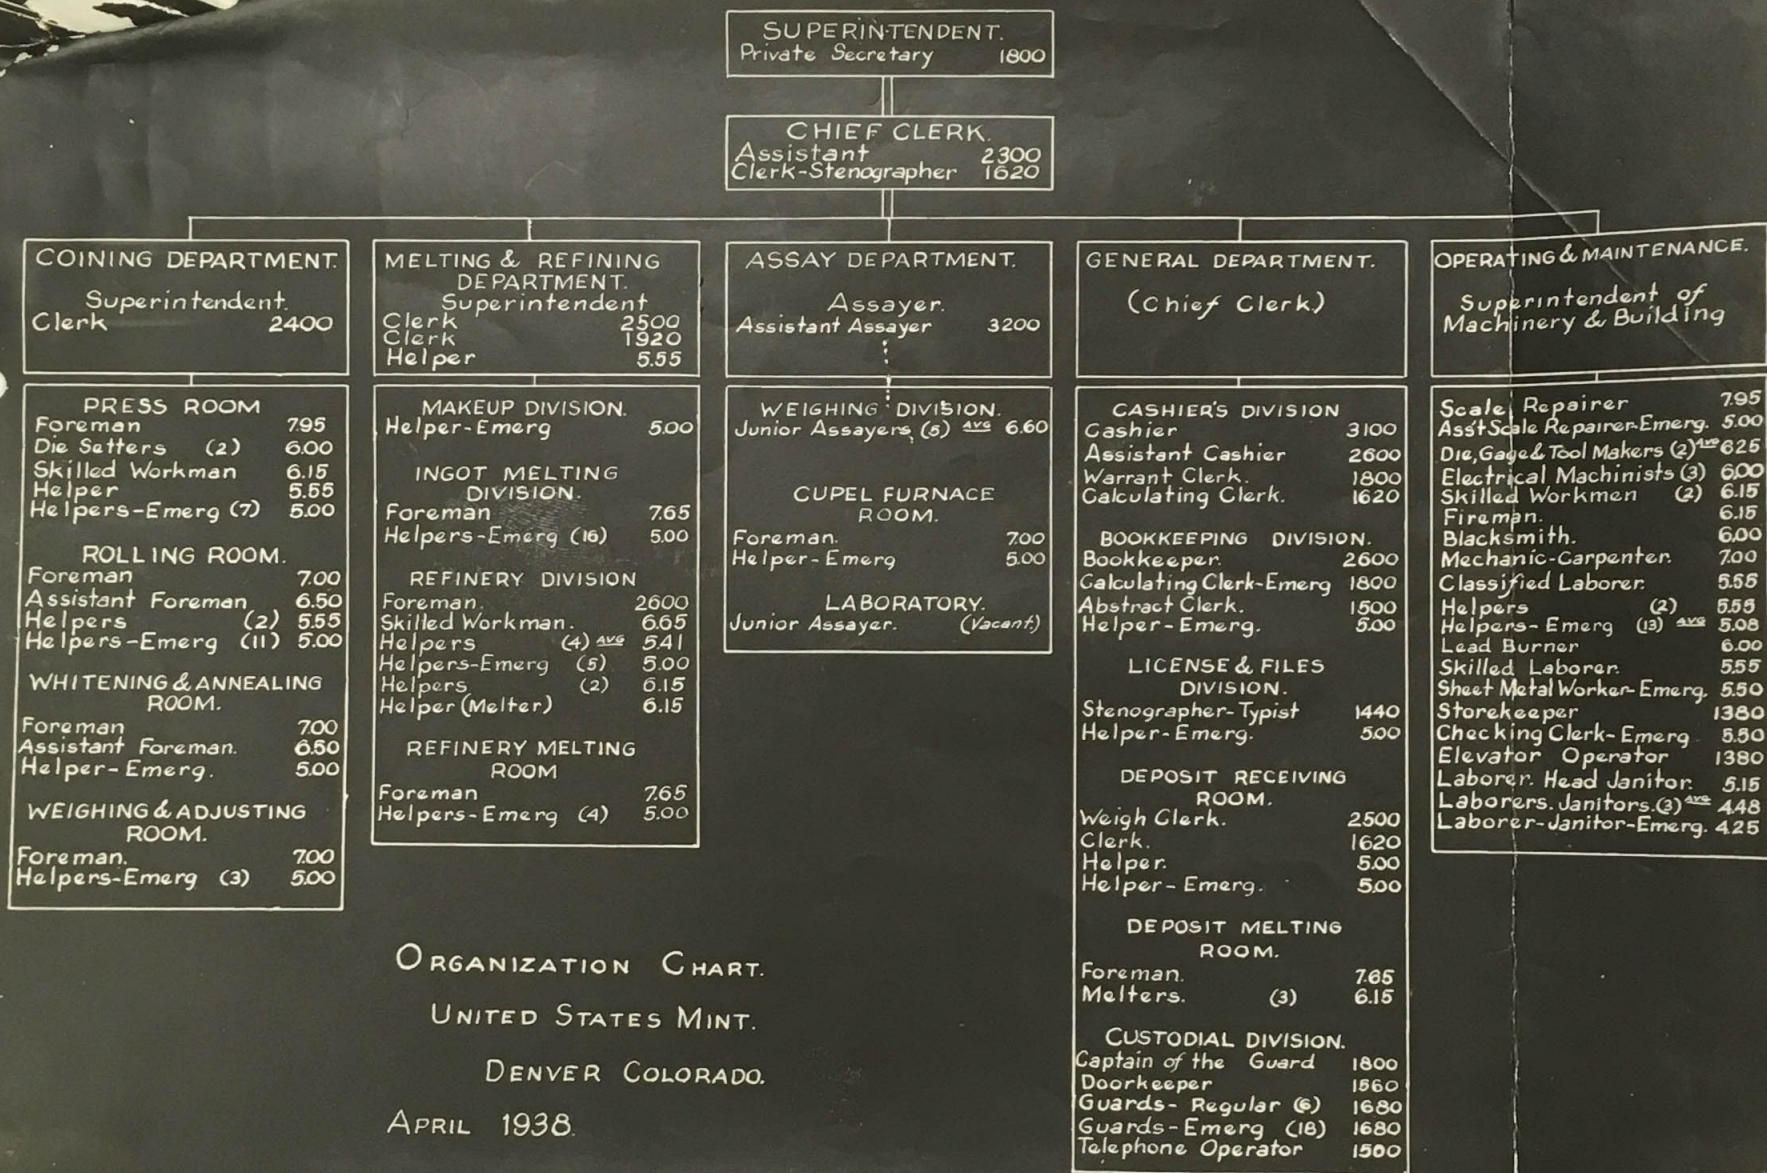 SUPERINTENDENT.
Private Secretary 1800
CHIEF CLERK.
Assistant 2300
Clerk-Stenographer 1620
COINING DEPARTMENT.
Superintendent.
Clerk 2400
PRESS ROOM
Foreman 7.95
Die Setters (2) 6.00
Skilled Workman 6.15
Helper 5.55
Helpers-Emerg (7) 5.00
ROLLING ROOM.
Foreman 7.00
Assistant Foreman 6.50
Helpers (2) 5.55
Helpers-Emerg (11) 5.00
WHITENING & ANNEALING
ROOM.
Foreman 7.00
Assistant Foreman. 6.50
Helper-Emerg. 5.00
WEIGHING & ADJUSTING
ROOM.
Foreman. 7.00
Helpers-Emerg (3) 5.00
MELTING & REFINING
DEPARTMENT.
Superintendent
Clerk 2500
Clerk 1920
Helper 5.55
MAKEUP DIVISION.
Helper-Emerg 5.00
INGOT MELTING
DIVISION.
Foreman 7.65
Helpers-Emerg (16) 5.00
REFINERY DIVISION
Foreman. 2600
Skilled Workman. 6.65
Helpers (4) AVG 5.41
Helpers-Emerg (5) 5.00
Helpers (2) 6.15
Helper (Melter) 6.15
REFINERY MELTING
ROOM
Foreman 7.65
Helpers-Emerg (4) 5.00
ASSAY DEPARTMENT.
Assayer.
Assistant Assayer 3200
WEIGHING DIVISION.
Junior Assayers, (5) AVG 6.60
CUPEL FURNACE
ROOM.
Foreman. 7.00
Helper-Emerg 5.00
LABORATORY.
Junior Assayer. (Vacant)
GENERAL DEPARTMENT.
(Chief Clerk)
CASHIER'S DIVISION
Cashier 3100
Assistant Cashier 2600
Warrant Clerk. 1800
Calculating Clerk. 1620
BOOKKEEPING DIVISION.
Bookkeeper. 2600
Calculating Clerk-Emerg 1800
Abstract Clerk. 1500
Helper-Emerg. 5.00
LICENSE & FILES
DIVISION.
Stenographer-Typist 1440
Helper-Emerg. 5.00
DEPOSIT RECEIVING
ROOM.
Weigh Clerk. 2500
Clerk. 1620
Helper. 5.00
Helper-Emerg. 5.00
DEPOSIT MELTING
ROOM.
Foreman. 7.65
Melters. (3) 6.15
CUSTODIAL DIVISION.
Captain of the Guard 1800
Doorkeeper 1560
Guards-Regular (6) 1680
Guards-Emerg (18) 1680
Telephone Operator 1500
OPERATING & MAINTENANCE.
Superintendent of
Machinery & Building
Scale Repairer 7.95
Ass't Scale Repairer-Emerg. 5.00
Die, Gage & Tool Makers (2) AVG 6.25
Electrical Machinists (3) 6.00
Skilled Workmen (2) 6.15
Fireman. 6.15
Blacksmith. 6.00
Mechanic-Carpenter. 7.00
Classified Laborer. 5.55
Helpers (2) 5.55
Helpers-Emerg (13) AVG 5.08
Lead Burner 6.00
Skilled Laborer. 5.55
Sheet Metal Worker-Emerg. 5.50
Storekeeper 1380
Checking Clerk-Emerg 5.50
Elevator Operator 1380
Laborer. Head Janitor. 5.15
Laborers. Janitors. (3) AVG 4.48
Laborer-Janitor-Emerg. 4.25
ORGANIZATION CHART.
UNITED STATES MINT.
DENVER COLORADO.
APRIL 1938.